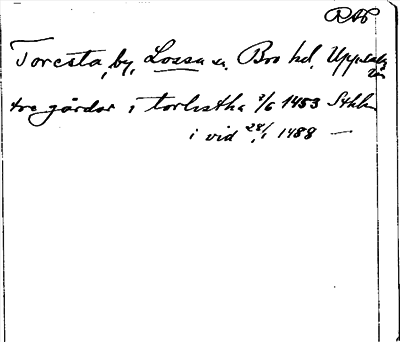 RAP
Toresta, by, Lossa sn. Bro hd. Uppsala
län
tre gårdar i torlestha 3/6 1453 Sthlm
i vid 28/1 1488 —